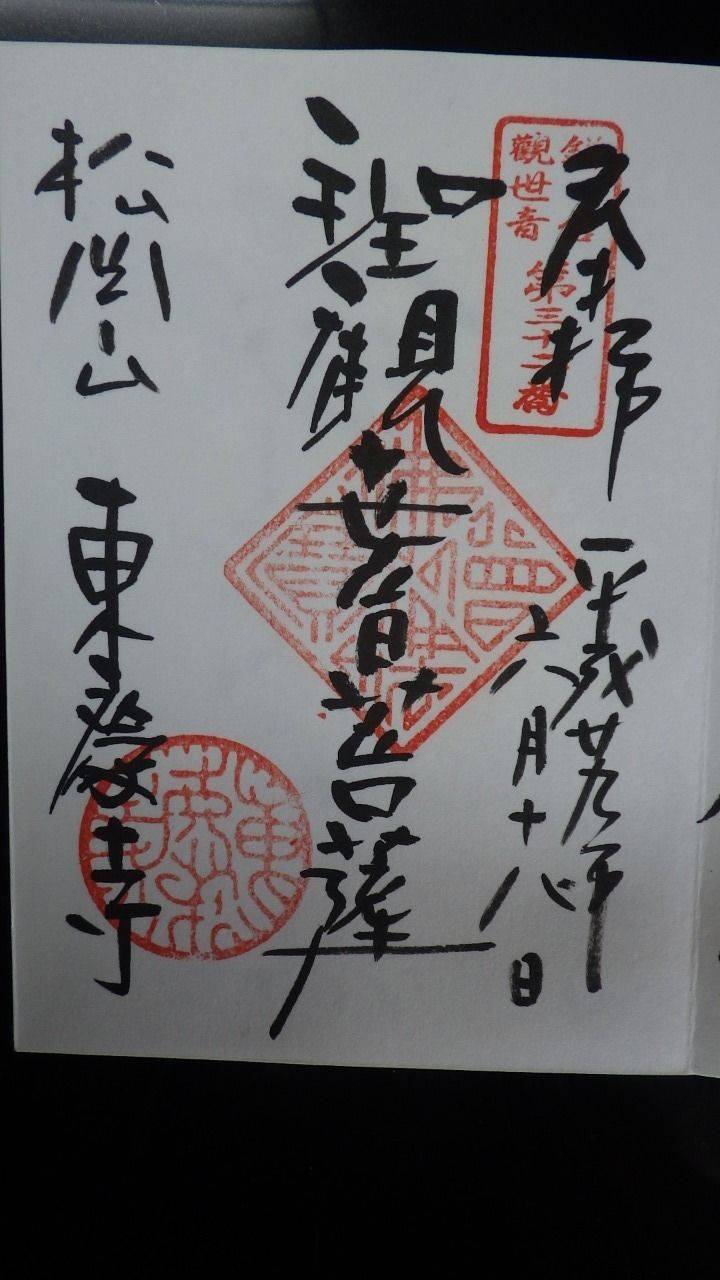 奉拝
平成廿九年
六月十八日
鎌倉
觀世音
第三十二番
聖觀世音菩薩
松岡山 東慶寺